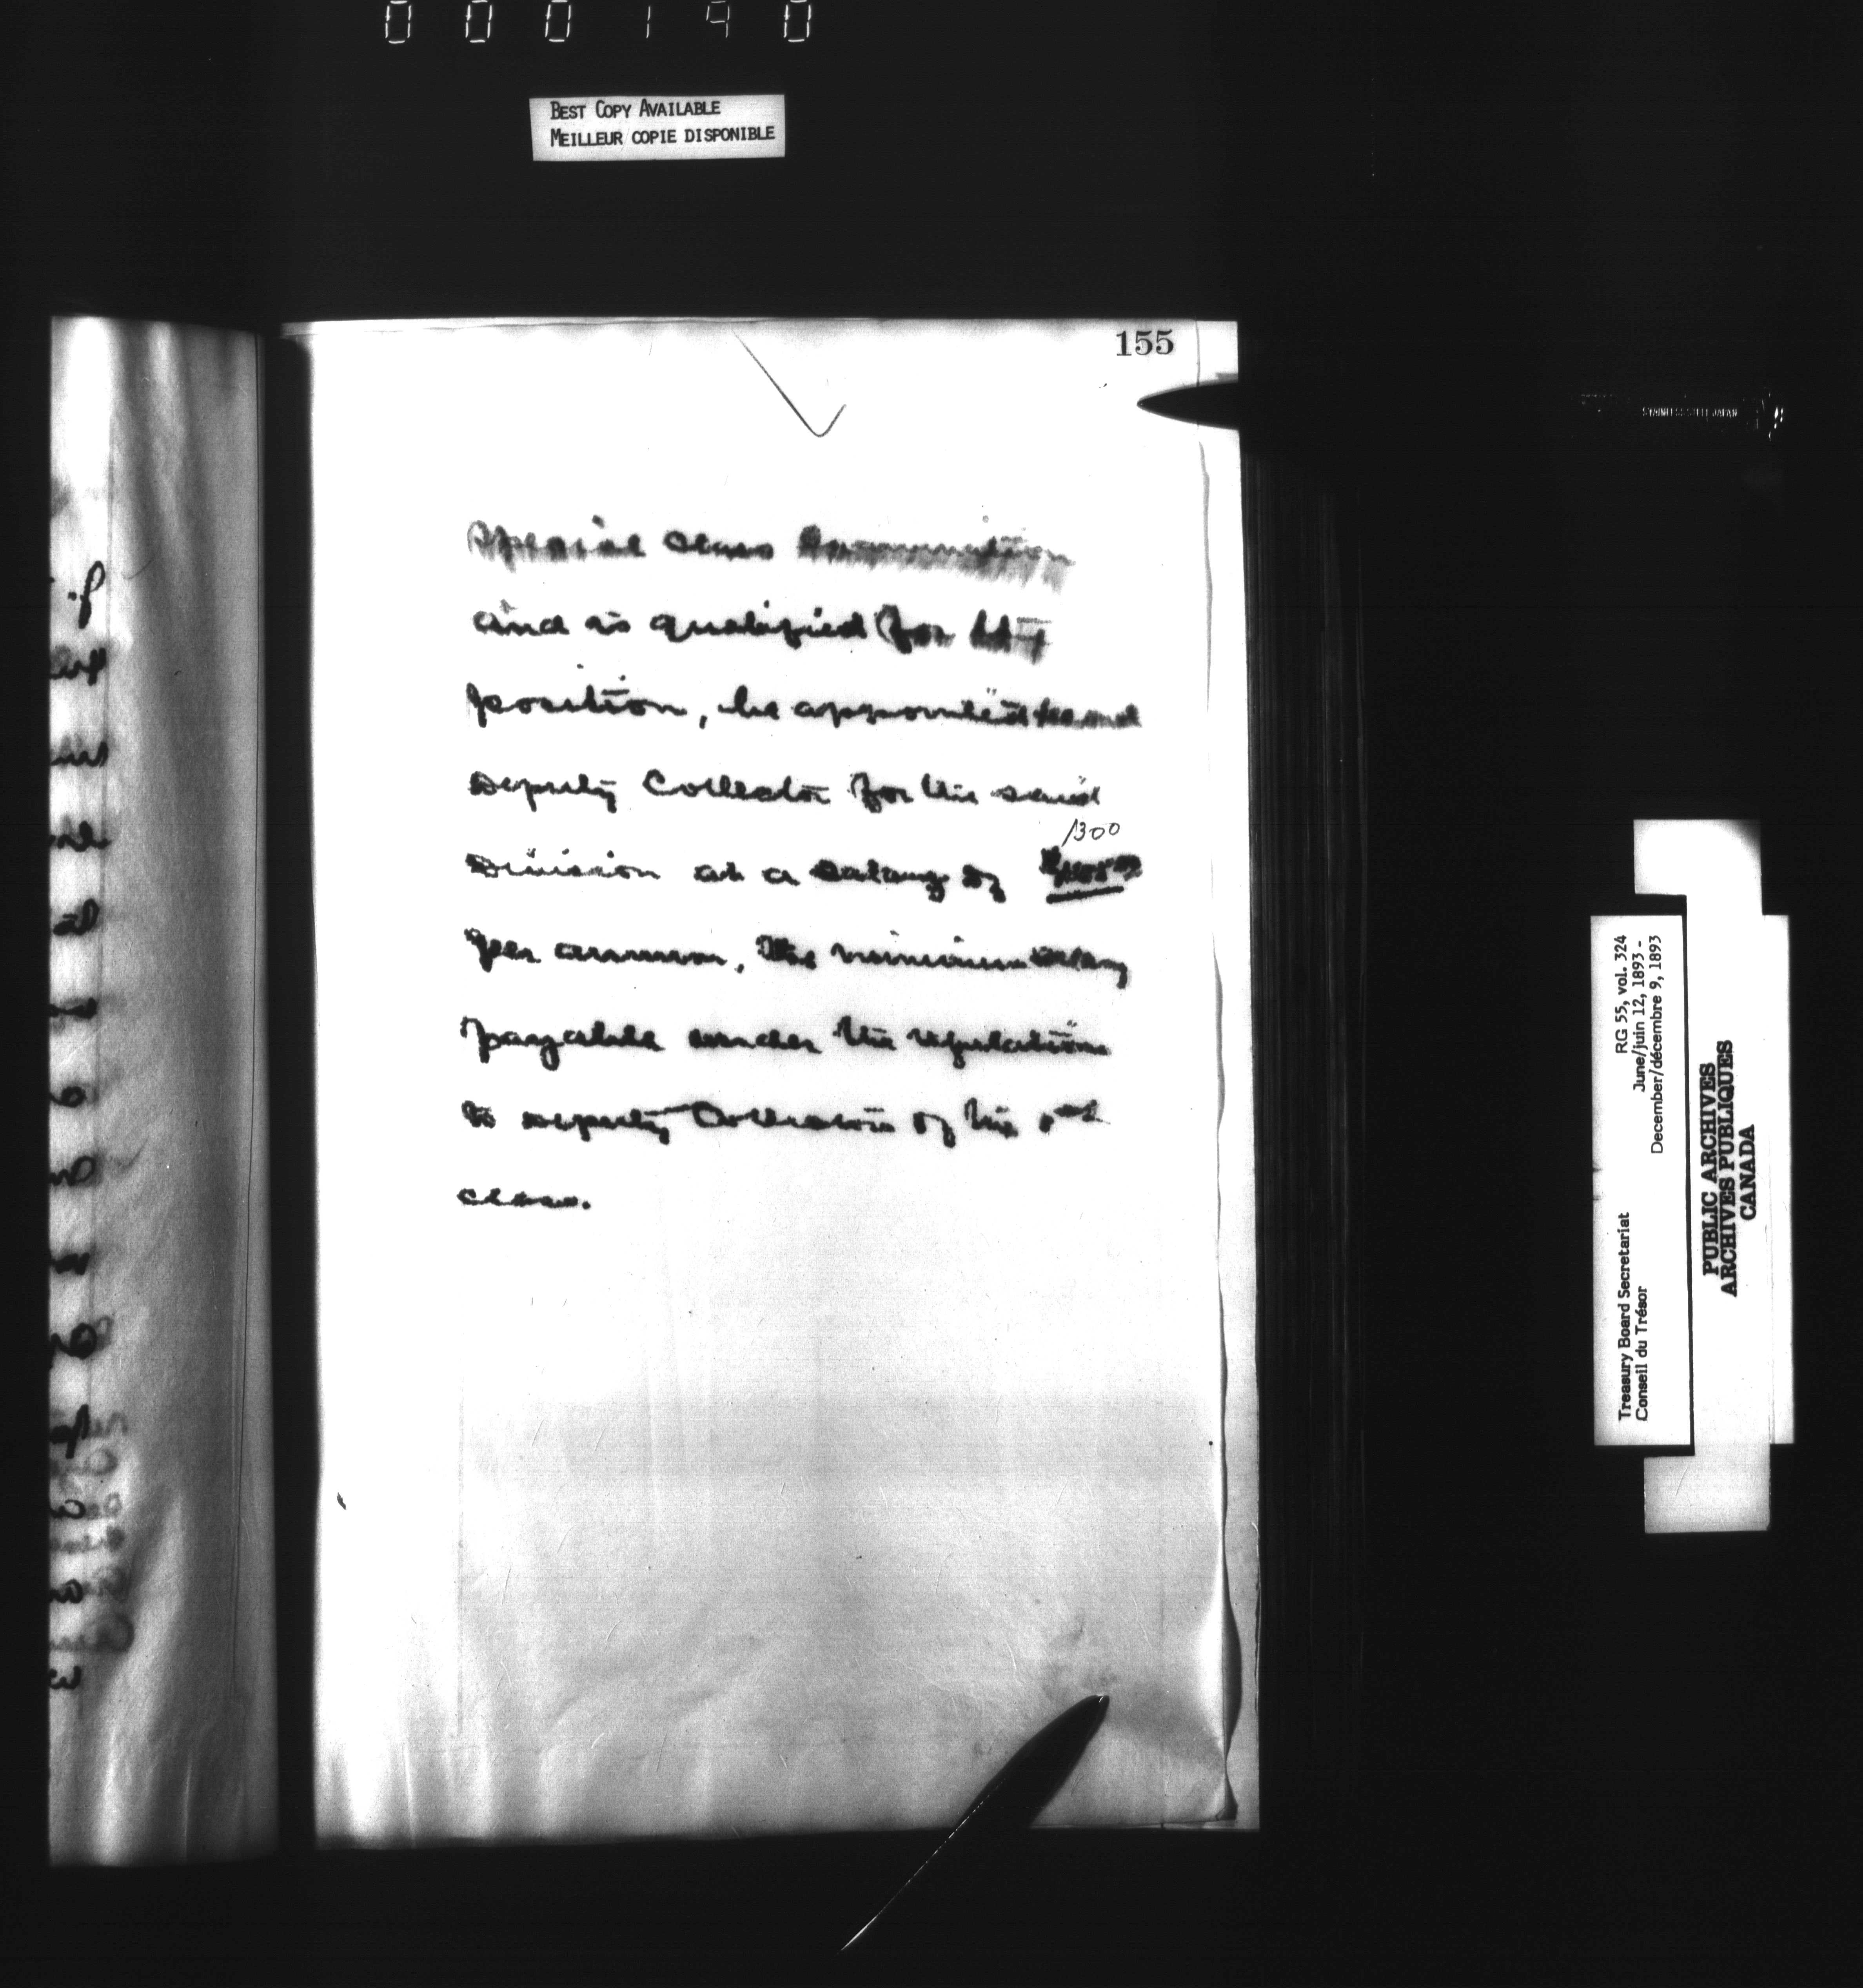 000190
BEST COPY AVAILABLE
MEILLEUR COPIE DISPONIBLE
155
Special Class Examination
and is qualified for the
position, be appointed
Deputy Collector for the said
1300
Division at a salary of
per annum, the minimum salary
payable under the regulations
to Deputy Collectors of his
class.
STAINLESS STEEL JAPAN
RG 55, vol. 324
June/juin 12, 1893 -
December/décembre 9, 1893
Treasury Board Secretariat
Conseil du Trésor
PUBLIC ARCHIVES
ARCHIVES PUBLIQUES
CANADA